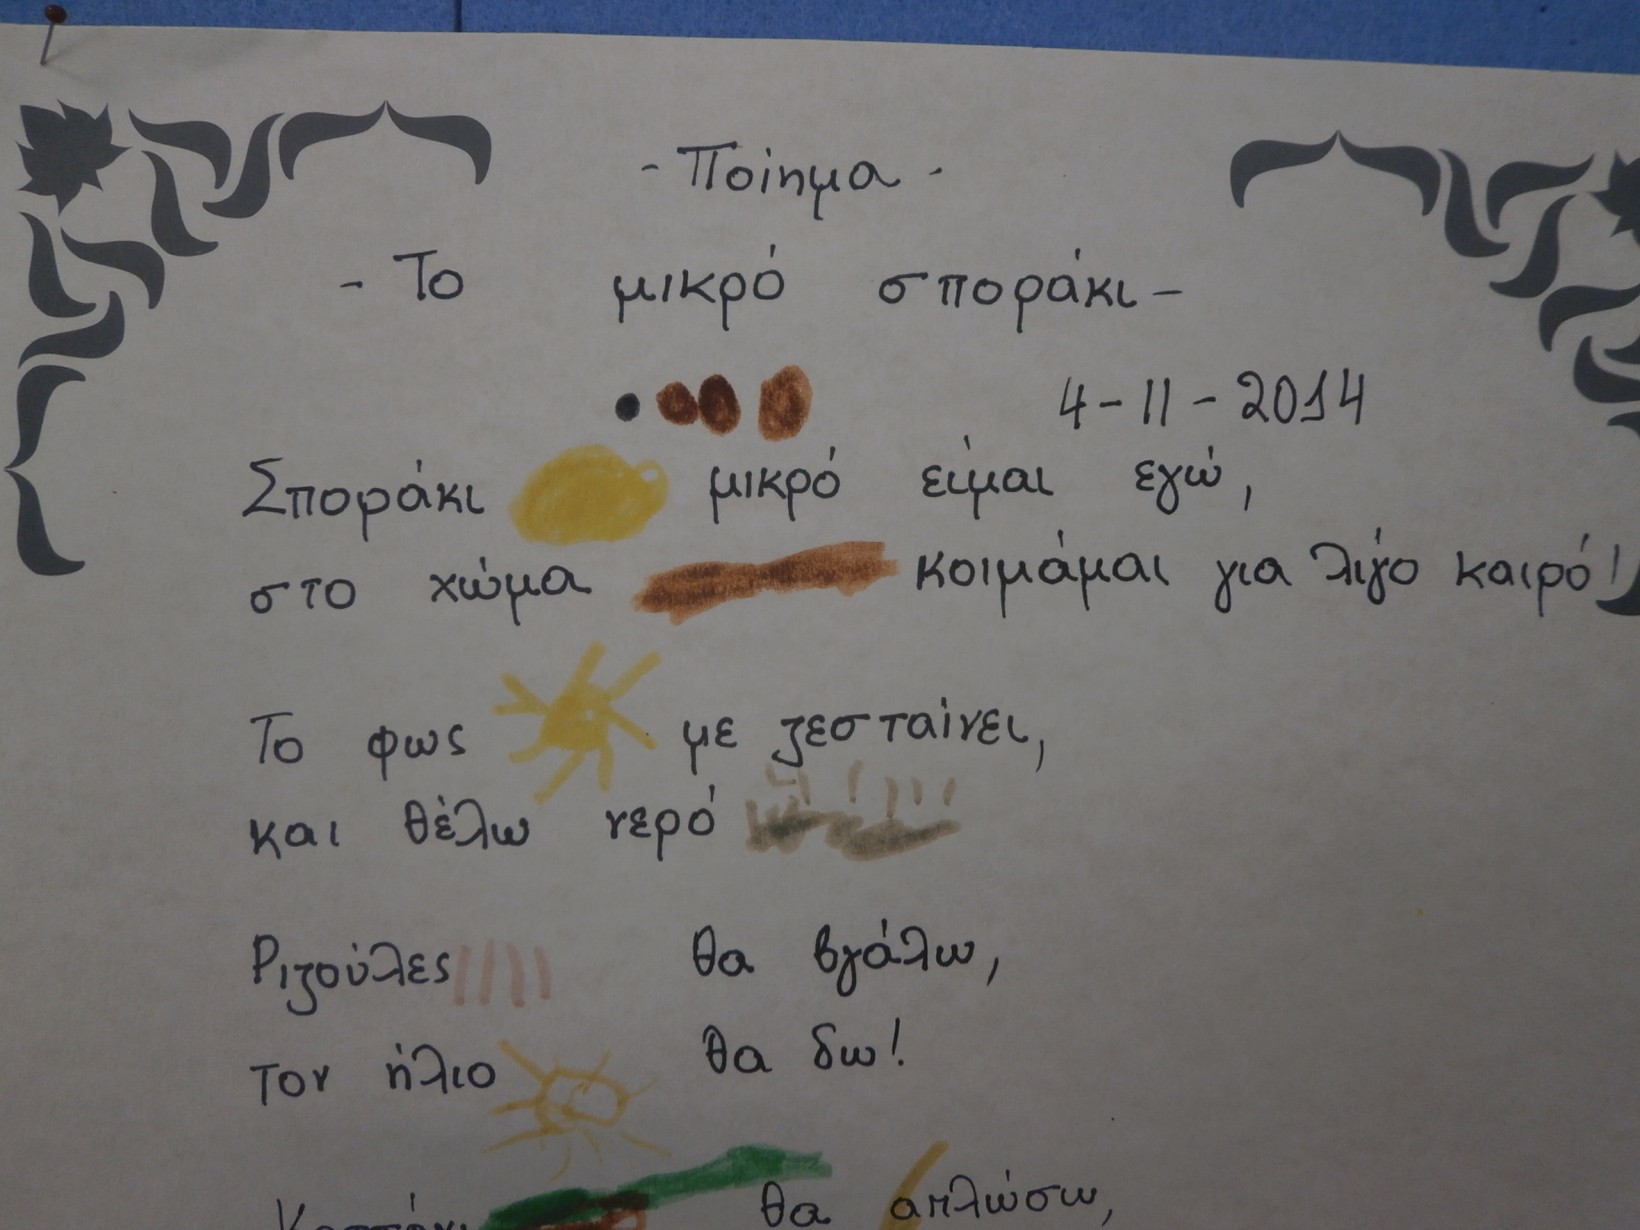 - Ποίημα -
- Το μικρό σποράκι -
4-11-2014
Σποράκι μικρό είμαι εγώ,
στο χώμα κοιμάμαι για λίγο καιρό!
Το φως με ζεσταίνει,
και θέλω νερό
Ριζούλες θα βγάλω,
τον ήλιο θα δω!
θα απλώσω,